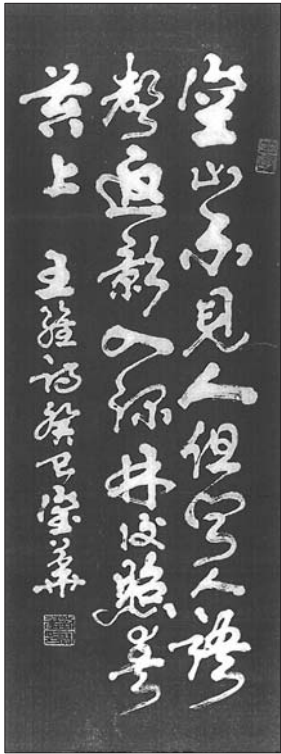 空山不見人但闻人語
響返影入深林復照青
苔上 王維詩癸巳 華